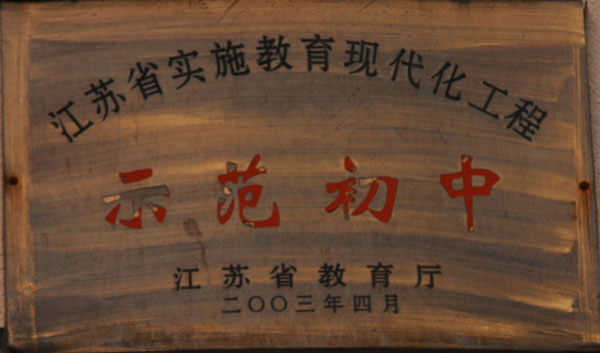 江苏省实施教育现代化工程
示范初中
江苏省教育厅
二〇〇三年四月